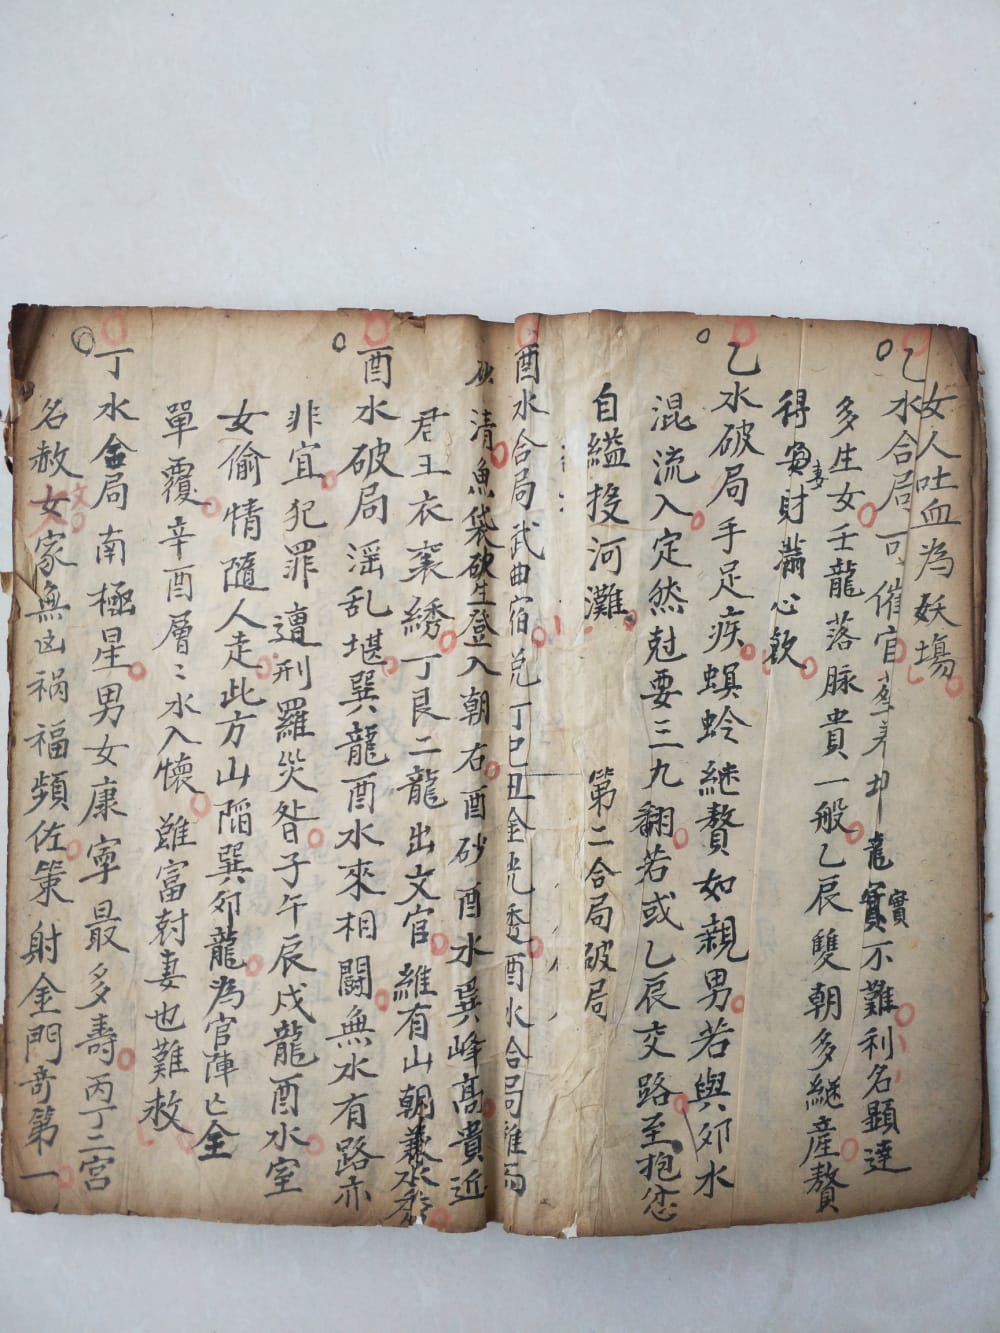 女人吐血為妖塲
乙水合局可催官 艮龍實不難利名顯達
多生女壬龍落脉貴一般乙辰雙朝多継產贅
得妻財滿心歡
乙水破局手足疾螟蛉継贅如親男若與卯水
混流入定然尅妻三九翻若或乙辰交路至抱
自縊投河灘 第二合局破局
酉水合局武曲宿兌丁巳丑金 酉水合局
清魚袋 登入朝右酉砂酉水巽峰高貴近
君王衣裏綉丁艮二龍出文官維有山朝兼水秀
酉水破局滛乱堪巽龍酉水來相鬪無水有路亦
非宜犯罪遭刑羅災咎子午辰戌龍酉水室
女偷情隨人走此方山陷巽卯龍為官陣亡全
單覆辛酉層〻水入懷雖富尅妻也難救
丁水合局南極星男女康寧最多壽丙丁二宮
名赦文女家無凶禍福頻佐策射金門奇第一